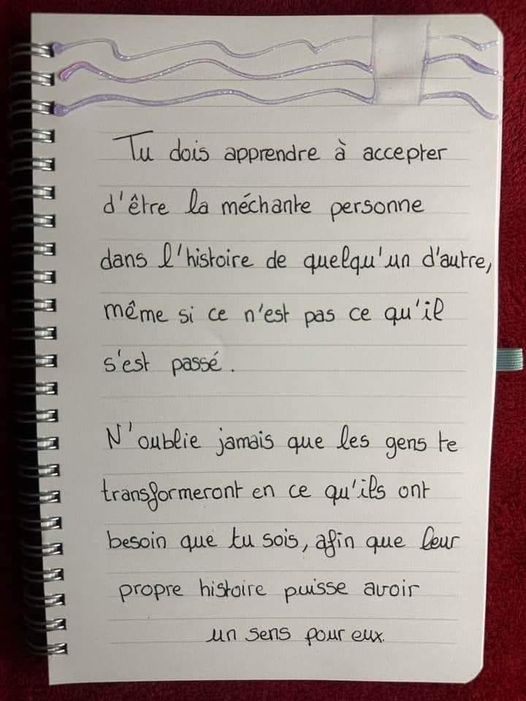 Tu dois apprendre à accepter
d'être la méchante personne
dans l'histoire de quelqu'un d'autre,
même si ce n'est pas ce qu'il
s'est passé.
N'oublie jamais que les gens te
transformeront en ce qu'ils ont
besoin que tu sois, afin que leur
propre histoire puisse avoir
un sens pour eux.